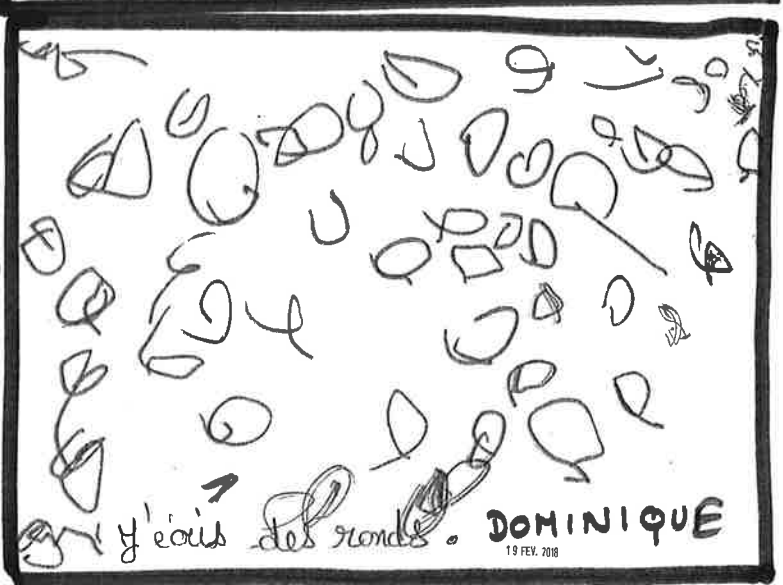 J'écris des ronds. DOMINIQUE
19 FEV. 2018